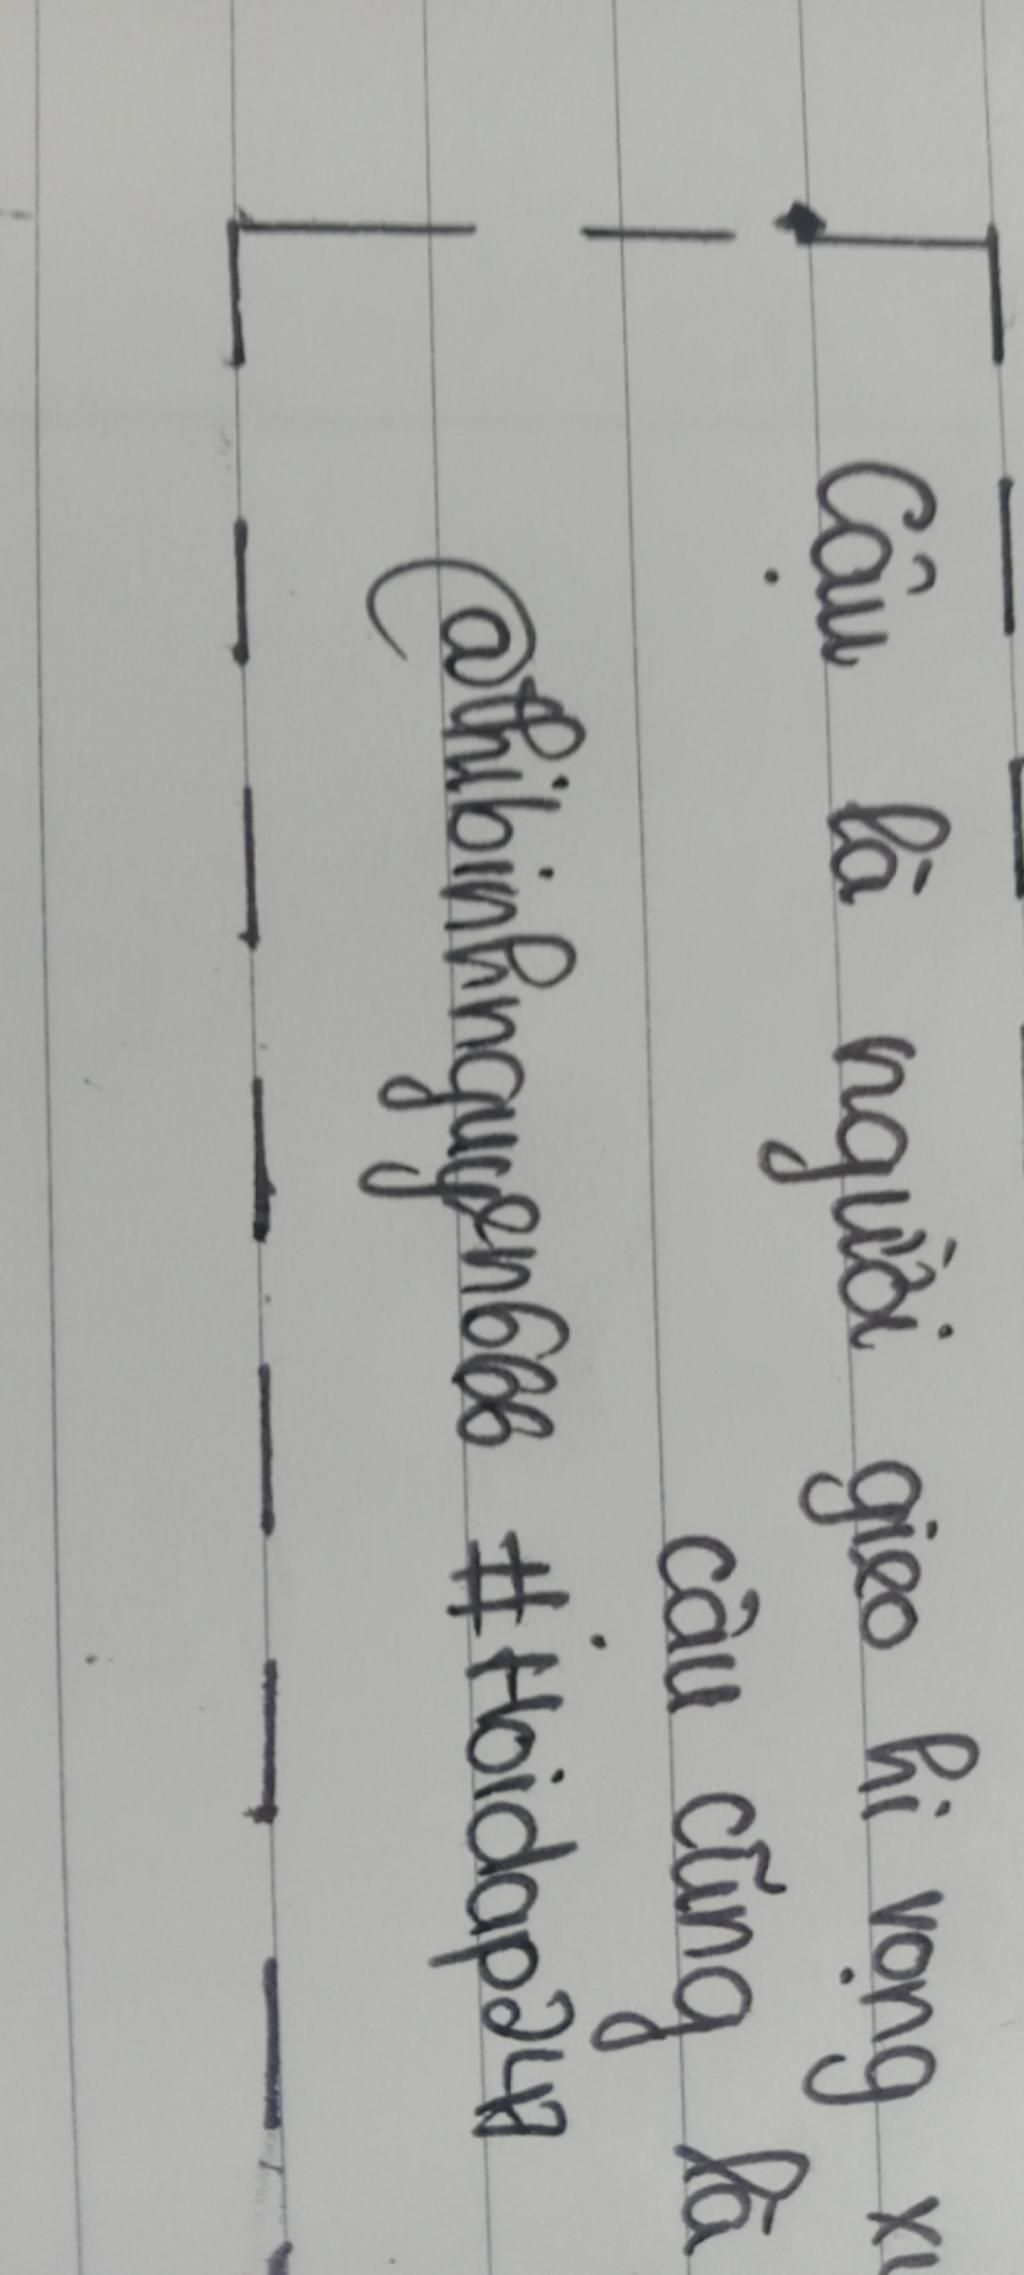 Cậu là người gieo hi vọng
cậu cũng là
@thibinhnguyen666 #Hoidap247